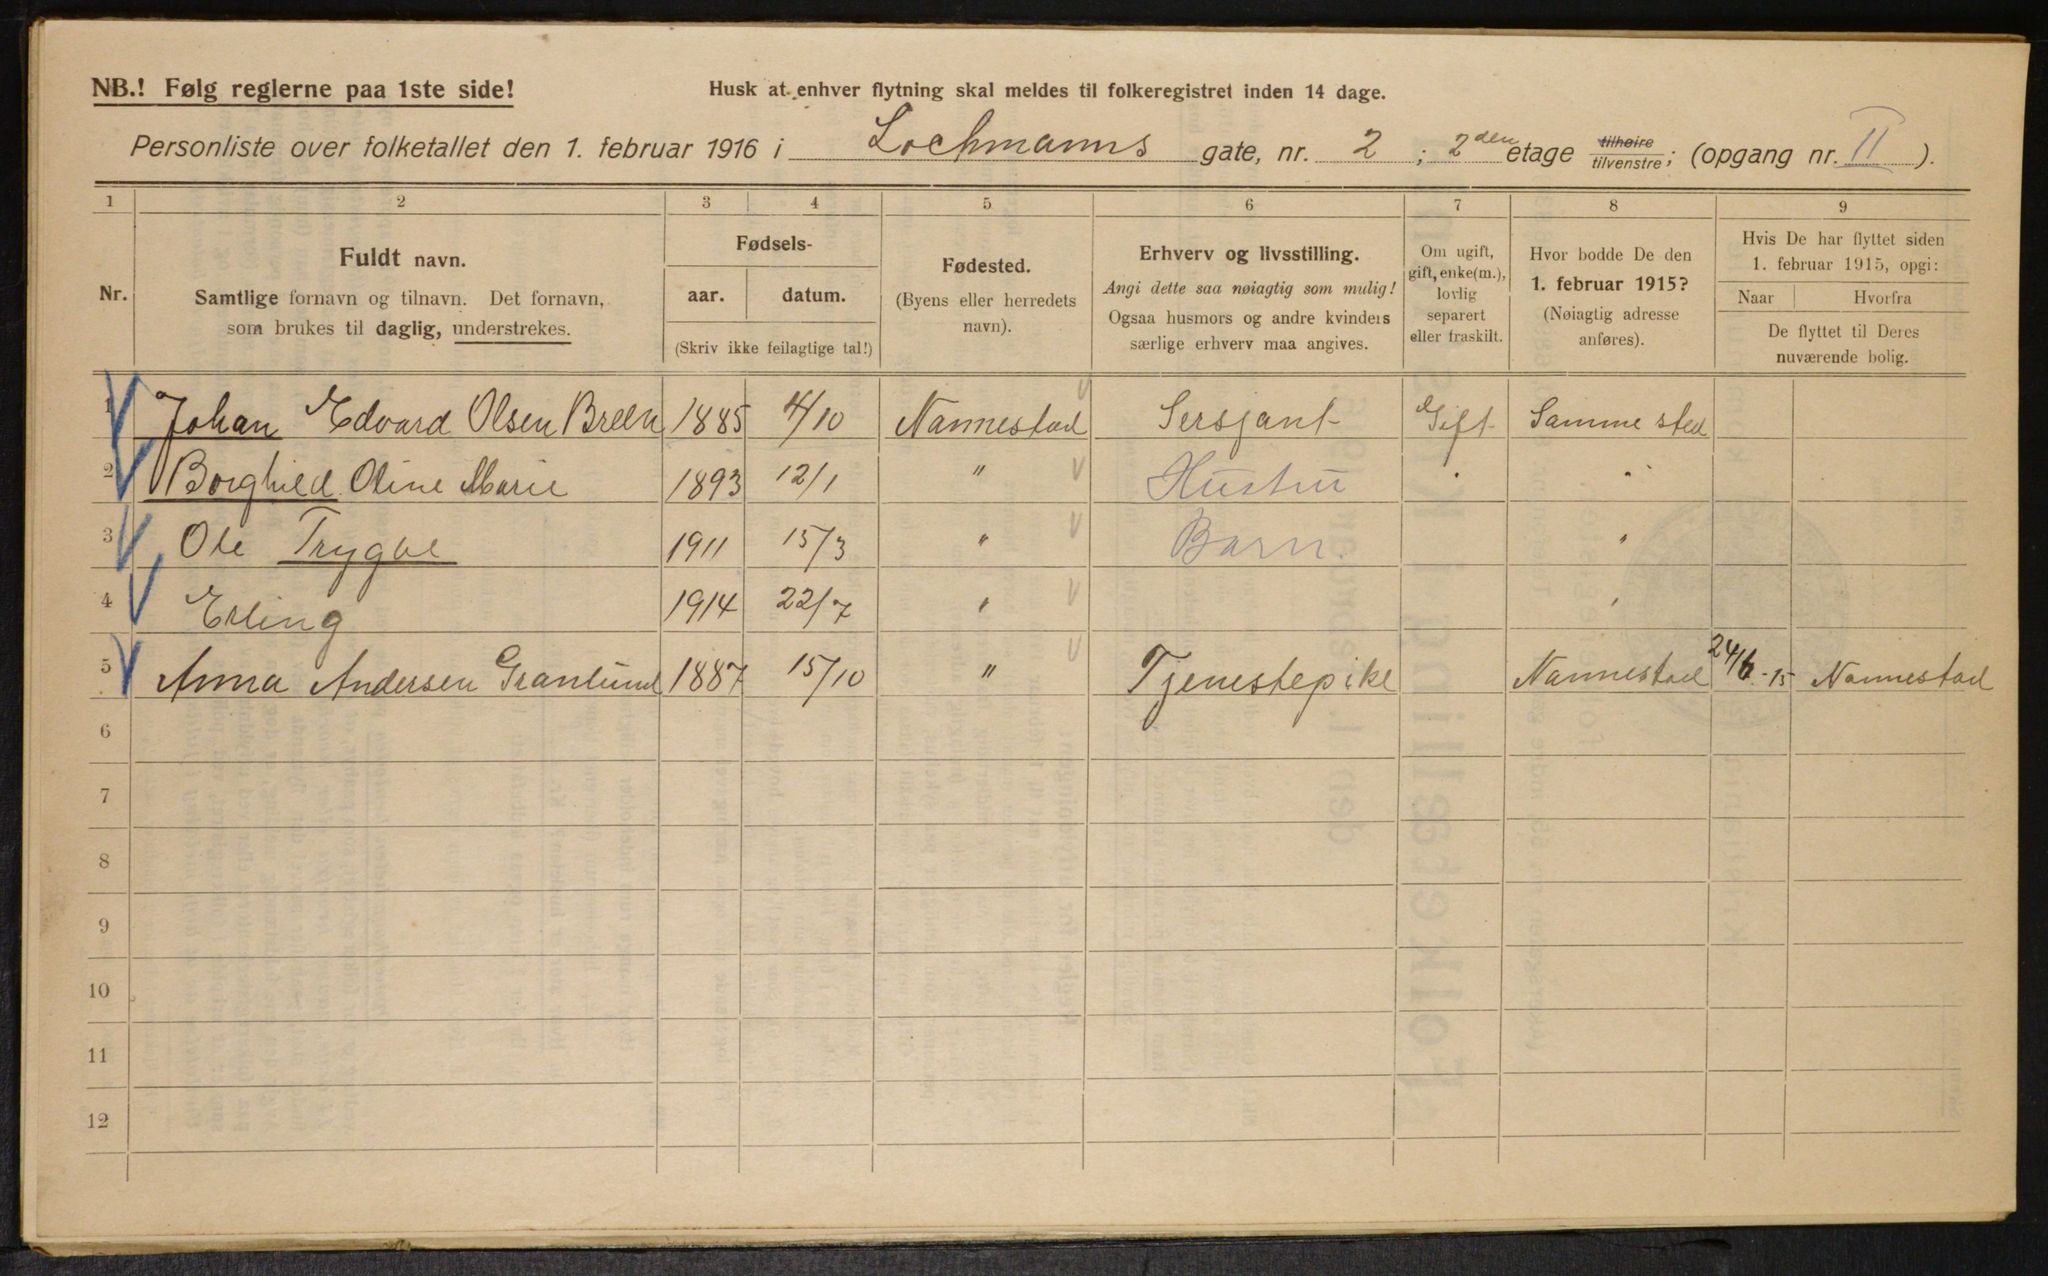 NB.! Følg reglerne paa 1ste side!
Husk at enhver flytning skal meldes til folkeregistret inden 14 dage.
Personliste over folketallet den 1. februar 1916 i Lochmanns gate, nr. 2 ; 2den etage tilhøire tilvenstre ; (opgang nr. II ).
1 2 3 4 5 6 7 8 9
Nr.
Fuldt navn.
Samtlige fornavn og tilnavn. Det fornavn,
som brukes til daglig, understrekes.
Fødsels-
aar. datum.
(Skriv ikke feilagtige tal!)
Fødested.
(Byens eller herredets
navn).
Erhverv og livsstilling.
Angi dette saa nøiagtig som mulig!
Ogsaa husmors og andre kvinders
særlige erhverv maa angives.
Om ugift,
gift, enke(m.),
lovlig
separert
eller fraskilt.
Hvor bodde De den
1. februar 1915?
(Nøiagtig adresse
anføres).
Hvis De har flyttet siden
1. februar 1915, opgi:
Naar Hvorfra
De flyttet til Deres
nuværende bolig.
1 Johan Edvard Olsen Breen 1885 4/10 Nannestad Sersjant Gift Samme sted
2 Borghild Oline Marie 1893 12/1 " Hustru " "
3 Ole Trygve 1911 15/3 " Barn. "
4 Erling 1914 22/7 " "
5 Anna Andersen Granlund 1887 15/10 " Tjenestepike Nannestad 24/6-15 Nannestad
6
7
8
9
10
11
12